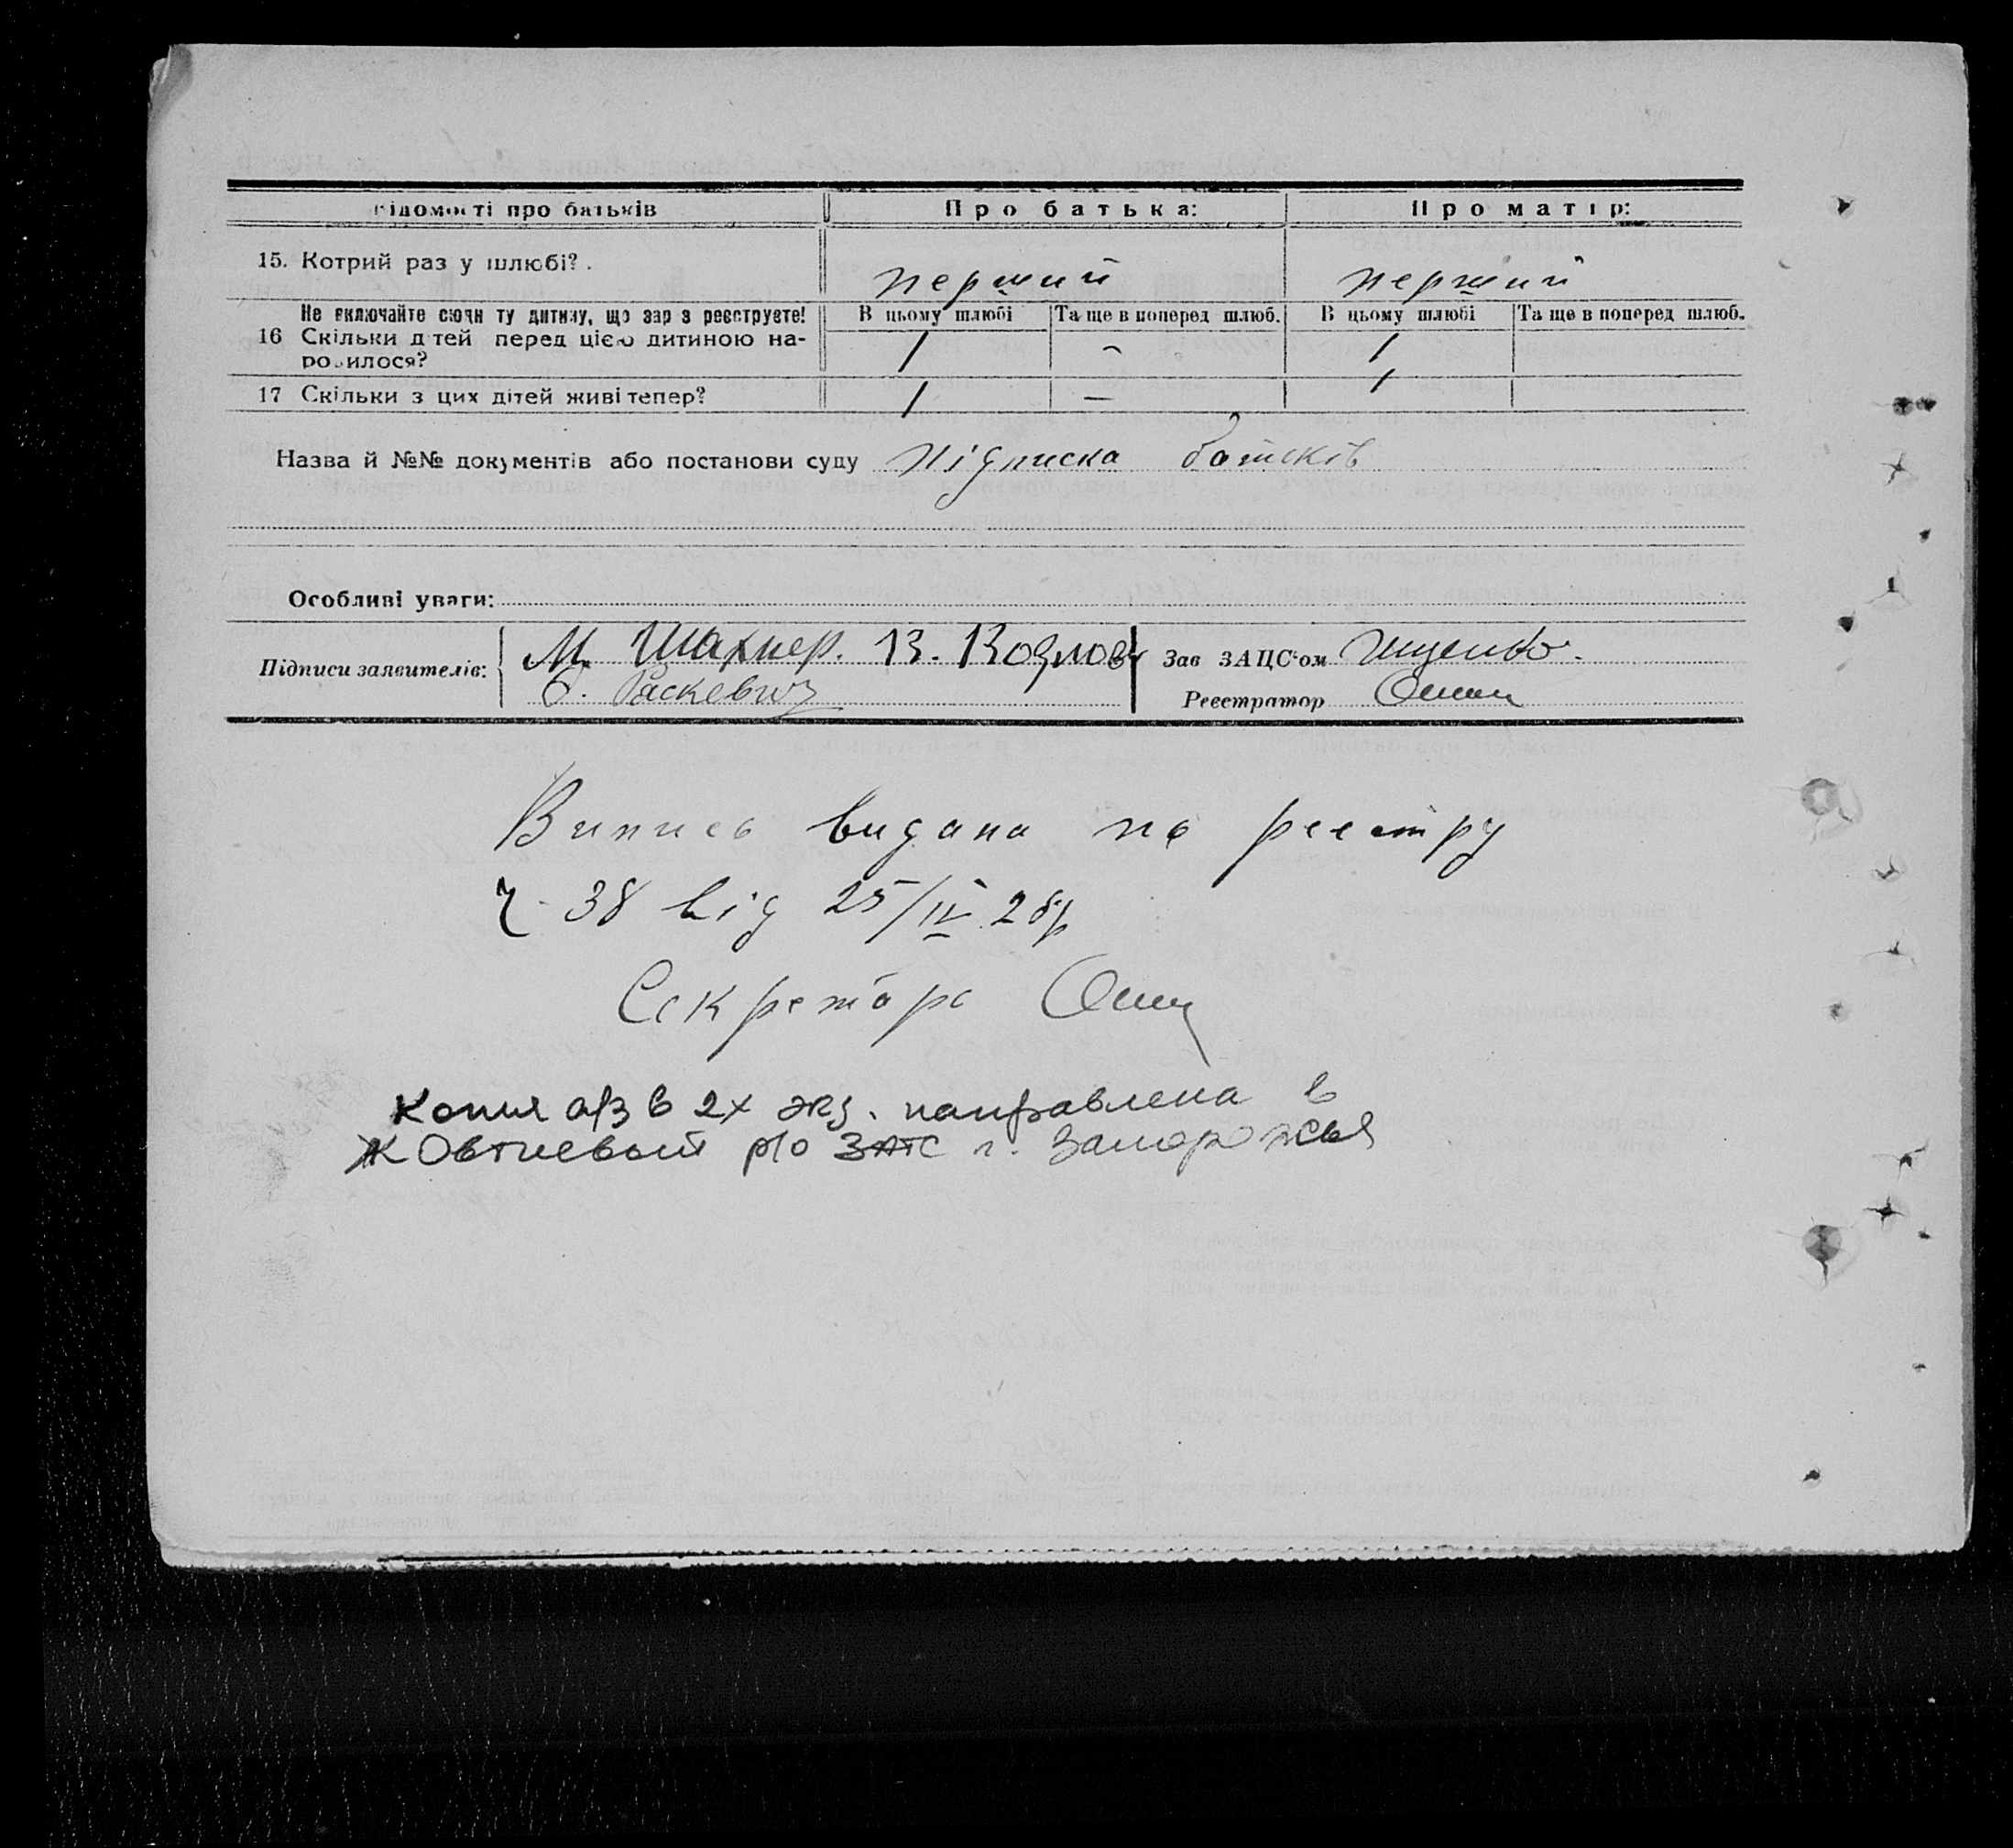 Відомості про батьків Про батька: Про матір:
15. Котрий раз у шлюбі? . перший перший
Не включайте сюди ту дитину, що зар з реєструєте! В цьому шлюбі Та ще в поперед шлюб. В цьому шлюбі Та ще в поперед шлюб.
16 Скільки дітей перед цією дитиною на- 1 – 1
родилося?
17 Скільки з цих дітей живі тепер? 1 — 1
Назва й №№ документів або постанови суду підписка батьків
Особливі уваги:
Підписи заявителів: М. Шахнер. В. Козлов Зав ЗАЦС'ом Іщенко.
Раскевич Реєстратор
Випись видана по реєстру
ч. 38 від 25/IV 28р
Секретарь
Копия а/з в 2х экз. направлена в
Жовтневый р/о ЗАГС г. Запорожья